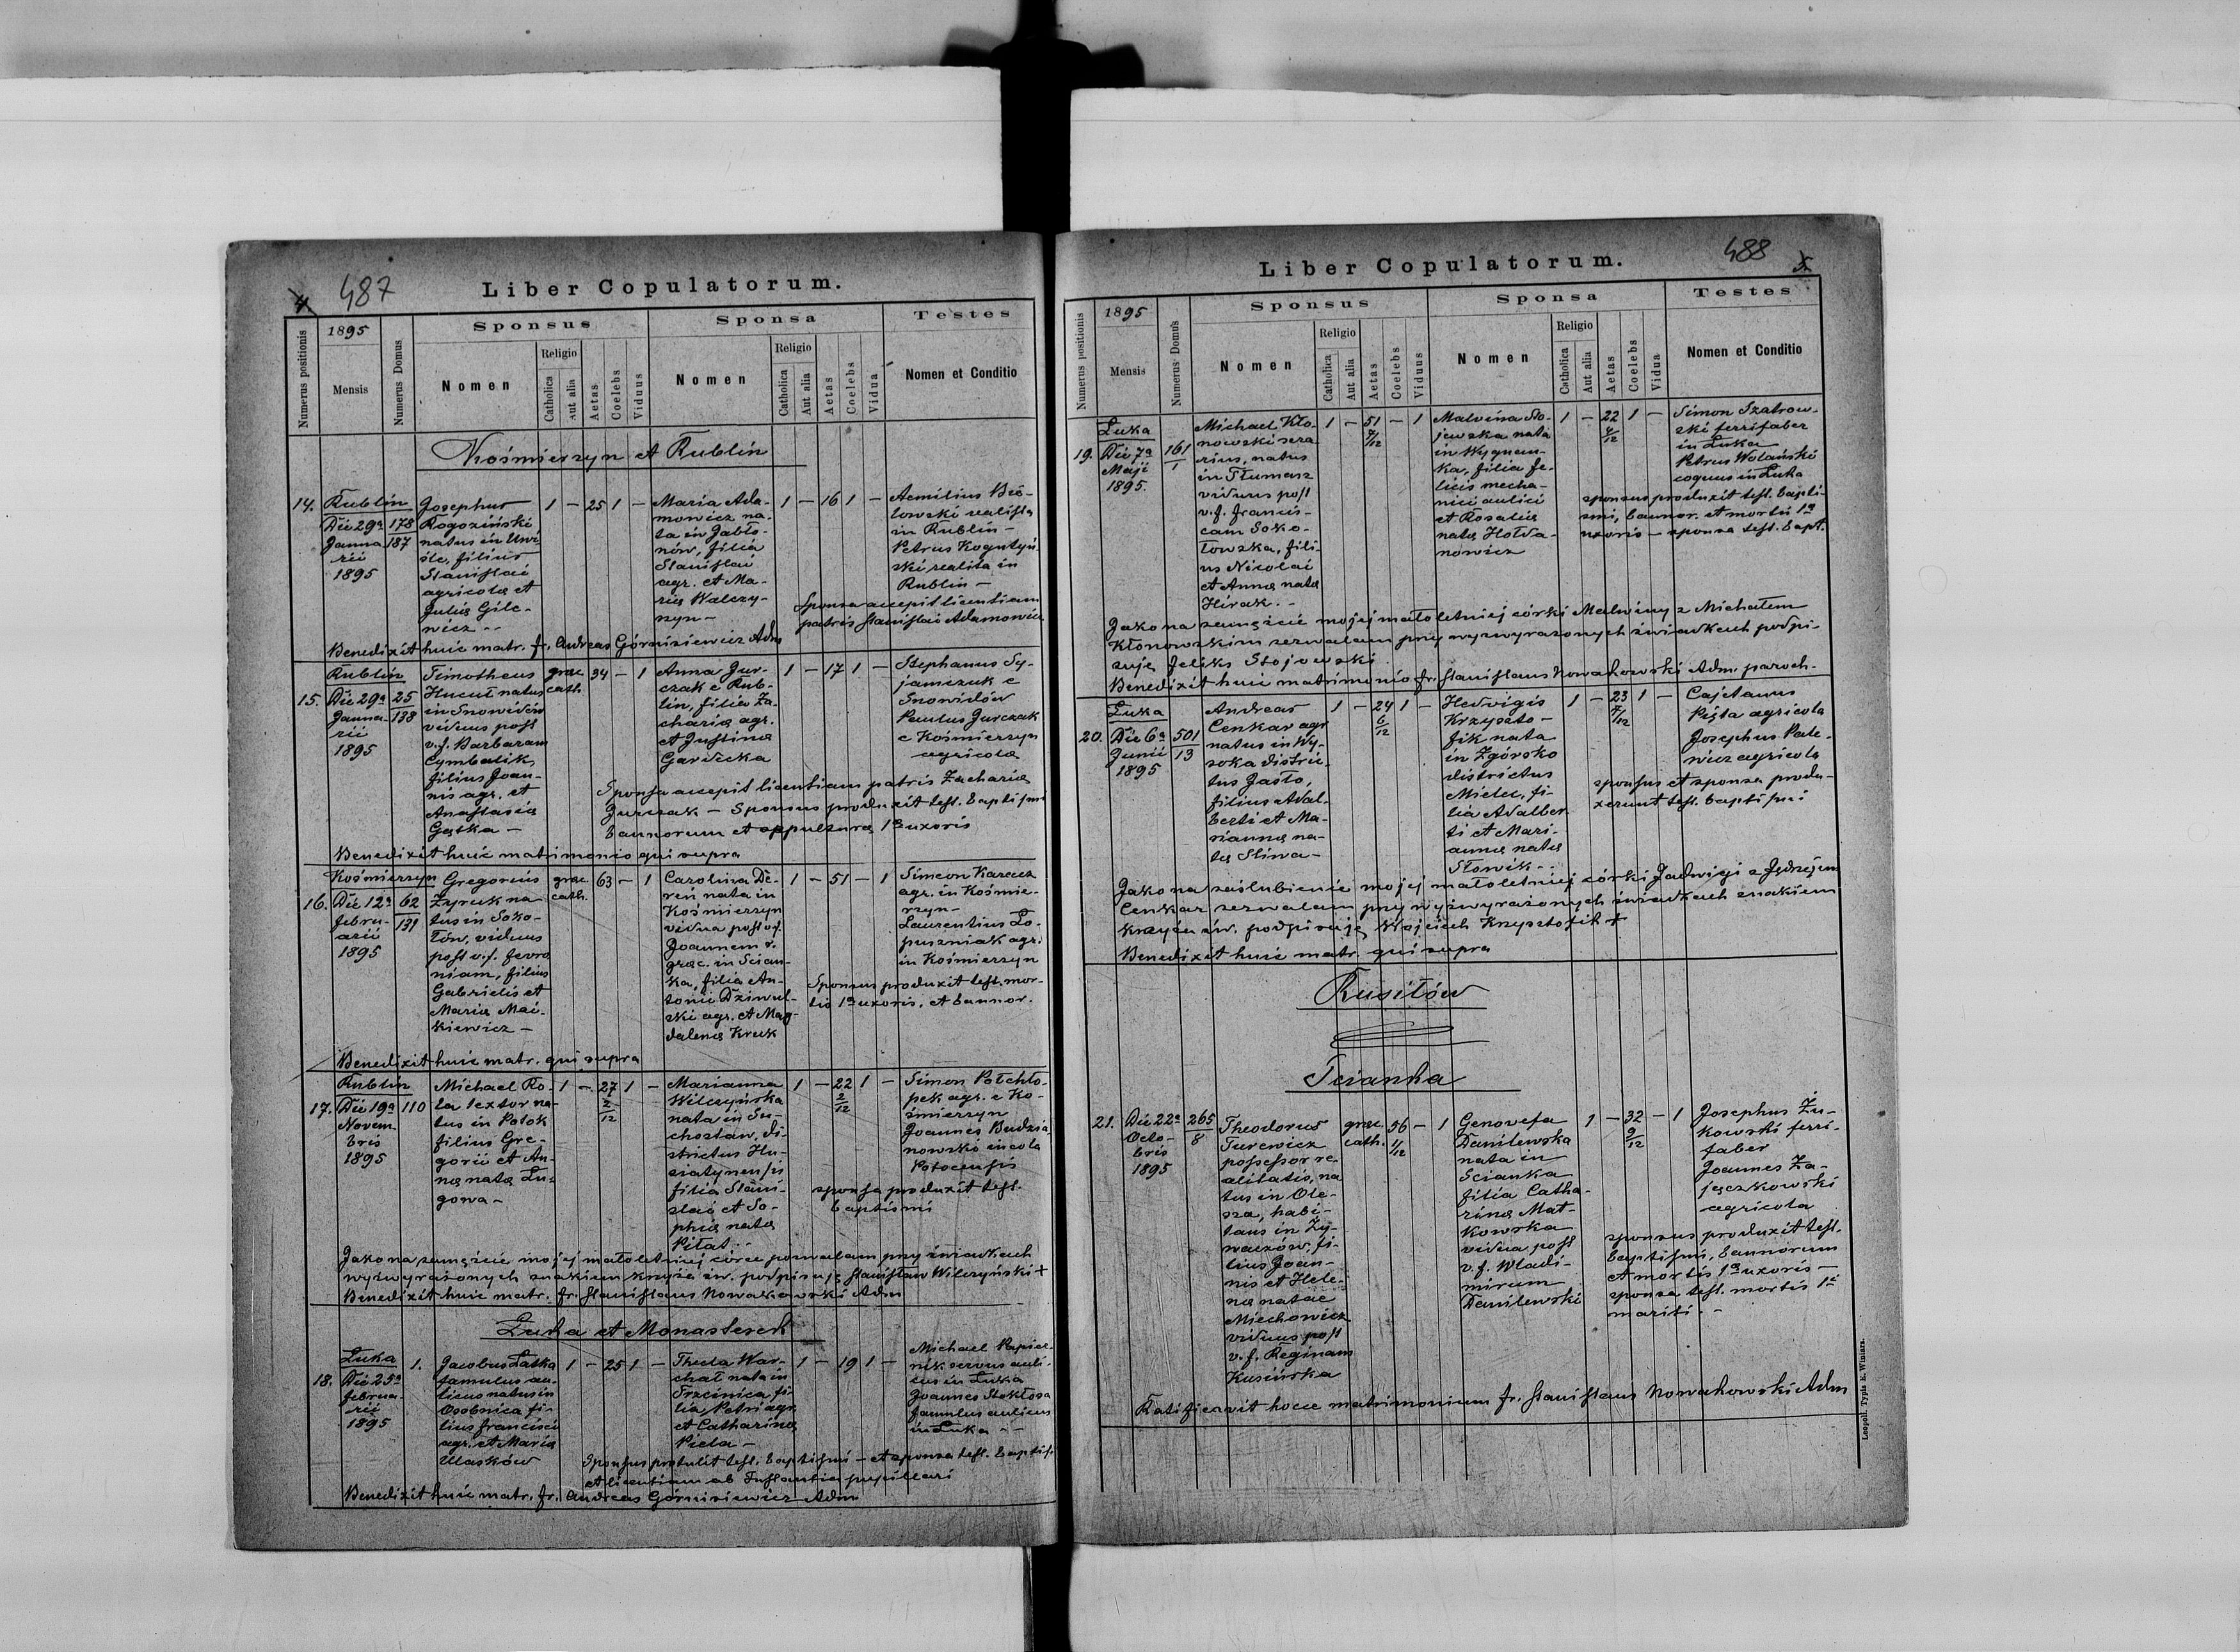 4.
487
Liber Copulatorum.
Numerus positionis
1895
Mensis
Numerus Domus
Sponsus
Nomen
Religio
Catholica
Aut alia
Aetas
Coelebs
Viduus
Sponsa
Nomen
Religio
Catholica
Aut alia
Aetas
Coelebs
Vidua
Testes
Nomen et Conditio
Kośmierzyn et Rublin
14.
Rublin
Die 29ª
Janua
rii
1895
178
187
Josephus
Rogoziński
natus in Uni
śle, filius
Stanislai
agricolæ et
Juliæ Gile-
wicz --
1 – 25 1 –
Maria Ada-
mowicz na-
ta in Jabło-
nów, filia
Stanislai
agr. et Ma-
riæ Walczy-
szyn –
1 – 16 1 –
Aemilius Bie-
lowski realista
in Rublin –
Petrus Kogutyń-
ski realista in
Rublin –
Sponsa accepit licentiam
patris Stanislai Adamowicz
Benedixit huic matr. fr. Andreas Górnisiewicz Adm
15.
Rublin
Die 29ª
Janua-
rii
1895
25
138
Timotheus
Hucuł natus
in Snowidów
viduus post
v.f. Barbaram
Cymbalik,
filius Joan-
nis agr. et
Anastasiæ
Gąska –
græc
cath
34 – 1
Anna Jur-
czak e Rub-
lin, filia Za-
chariæ agr.
et Justinæ
Gawdecka
1 – 17 1 –
Stephanus Sy-
jamczuk e
Snowidów
Paulus Jurczak
e Kośmierzyn
agricola
Sponsa accepit licentiam patris Zachariæ
Jurczak – Sponsus produxit test. baptismi
bannorum et sepulturæ 1æ uxoris
Benedixit huic matrimonio qui supra
16.
Kośmierzyn
Die 12ª
febru-
arii
1895
62
131
Gregorius
Zyruk na
tus in Soko-
łów, viduus
post v.f. fevro
niam, filius
Gabrielis et
Mariæ Mać-
kiewicz –
græc
cath.
63 – 1
Carolina De-
reń nata in
Kośmierzyn
vidua post v.f.
Joannem r.
græc. in Scian-
ka, filia An-
tonii Dziwul-
ski agr. et Mag-
dalenæ Kruk
1 – 51 – 1
Simeon Karcez
agr. in Kośmie-
rzyn –
Laurentius Ło-
puszniak agr.
in Kośmierzyn
Sponsus produxit test. mor-
tis 1æ uxoris, et bannor.
Benedixit huic matr. qui supra
17.
Rublin
Die 19ª
Novem-
bris
1895
110
Michael Ro-
ta textor na-
tus in Potok
filius Gre-
gorii et An-
næ natæ Łu-
gowa –
1 – 27 1 –
2/12
Marianna
Wilczyńska
nata in Su-
chostaw, di-
strictus Hu-
siatynensis
filia Stani-
slai et So-
phiæ natæ
Piłat --
1 – 22 1 –
2/12
Simon Połchło-
pek agr. e Ko-
śmierzyn
Joannes Budzia
nowski incola
Potocensis
sponsa produxit test.
baptismi
Jako na zamęście mojej małoletniej córce pozwalam przy świadkach
wyżwyrażonych znakiem krzyża św. podpisuję Stanisław Wilczyński +
Benedixit huic matr. fr. Stanislaus Nowakowski Adm
Łuka et Monasterek
18.
Łuka
Die 25ª
februa-
rii
1895
1.
Jacobus Łatka
famulus au-
licus natus in
Osobnica fi-
lius francisci
agr. et Mariæ
Wasków
1 – 25 1 –
Thecla War-
chał nata in
Trzcinica fi-
lia Petri agr.
et Catharinæ
Pieta –
1 – 19 1 –
Michael Papier-
nik servus auli-
cus in Łuka
Joannes Stokłosa
famulus aulicus
in Łuka --
Sponsus protulit test. baptismi – et sponsa test. baptisi.
et licentiam ab Instantia pupillari
Benedixit huic matr. fr. Andreas Górnisiewicz Adm
488
5.
Liber Copulatorum.
Numerus positionis
1895
Mensis
Numerus Domus
Sponsus
Nomen
Religio
Catholica
Aut alia
Aetas
Coelebs
Viduus
Sponsa
Nomen
Religio
Catholica
Aut alia
Aetas
Coelebs
Vidua
Testes
Nomen et Conditio
19.
Łuka
Die 7ª
Maji
1895.
161
1
Michael Kło-
nowski sera
rius, natus
in Tłumacz
viduus post
v.f. francis-
cam Soko-
łowska, fili-
us Nicolai
et Annæ natæ
Hirak. –
1 – 51 – 1
7/12
Malvina Sto-
jowska nata
in Wygnan-
ka, filia fe-
licis mecha-
nici aulici
et Rosaliæ
natæ Hołda-
nowicz
1 – 22 1 –
4/12
Simon Szatrow-
ski ferrifaber
in Łuka
Petrus Wolański
coquus in Łuka
sponsus produxit test. bapti-
smi, bannor. et mortis 1æ
uxoris – sponsa test. bapt.
Jako na zamęście mojej małoletniej córki Malwiny z Michałem
Kłonowskim zezwalam przy wyżwyrażonych świadkach podpi-
suję feliks Stojowski
Benedixit huic matrimonio fr. Stanislaus Nowakowski Adm. paroch.
20.
Łuka
Die 6ª
Junii
1895
501
13
Andreas
Cenkar agr
natus in Wy-
soka distric-
tus Jasło,
filius Adal-
berti et Ma-
riannæ na-
tæ Śliwa –
1 – 24 1 –
6/12
Hedvigis
Krzyszto-
fik nata
in Zgórsko
districtus
Mielec, fi-
lia Adalber-
ti et Mari-
annæ natæ
Słowik --
1 – 23 1 –
7/12
Cajetanus
Pięta agricola
Josephus Pale-
wicz agricola
sponsus et sponsa produ-
xerunt test. baptismi
Jako na zaślubienie mojej małoletniej córki Jadwigi z Jędrzejem
Cenkar zezwalam przy wyżwyrażonych świadkach znakiem
krzyża św. podpisuję Wojciech Krzysztofik +
Benedixit huic matr. qui supra
Rusiłów
Scianka
21.
Die 22ª
Octo-
bris
1895
265
8
Theodorus
Turewicz
possessor re-
alitatis, na
tus in Ole-
sza, habi-
tans in Zy-
waczów, fi-
lius Joan-
nis et Hele-
næ natae
Miechowicz
viduus post
v.f. Reginam
Kusińska
græc
cath.
56 – 1
11/12
Genovefa
Danilewska
nata in
Scianka
filia Catha-
rinæ Mat-
kowska
vidua post
v.f. Wladi-
mirum
Danilewski
1 – 32 – 1
9/12
Josephus Żu-
kowski ferri-
faber
Joannes Za-
jączkowski
agricola
sponsus produxit test.
baptismi, bannorum
et mortis 1æ uxoris –
sponsa test. mortis 1i
mariti. –
Ratificavit hocce matrimonium fr. Stanislaus Nowakowski Adm
Leopoli. Typis E. Winiarz.